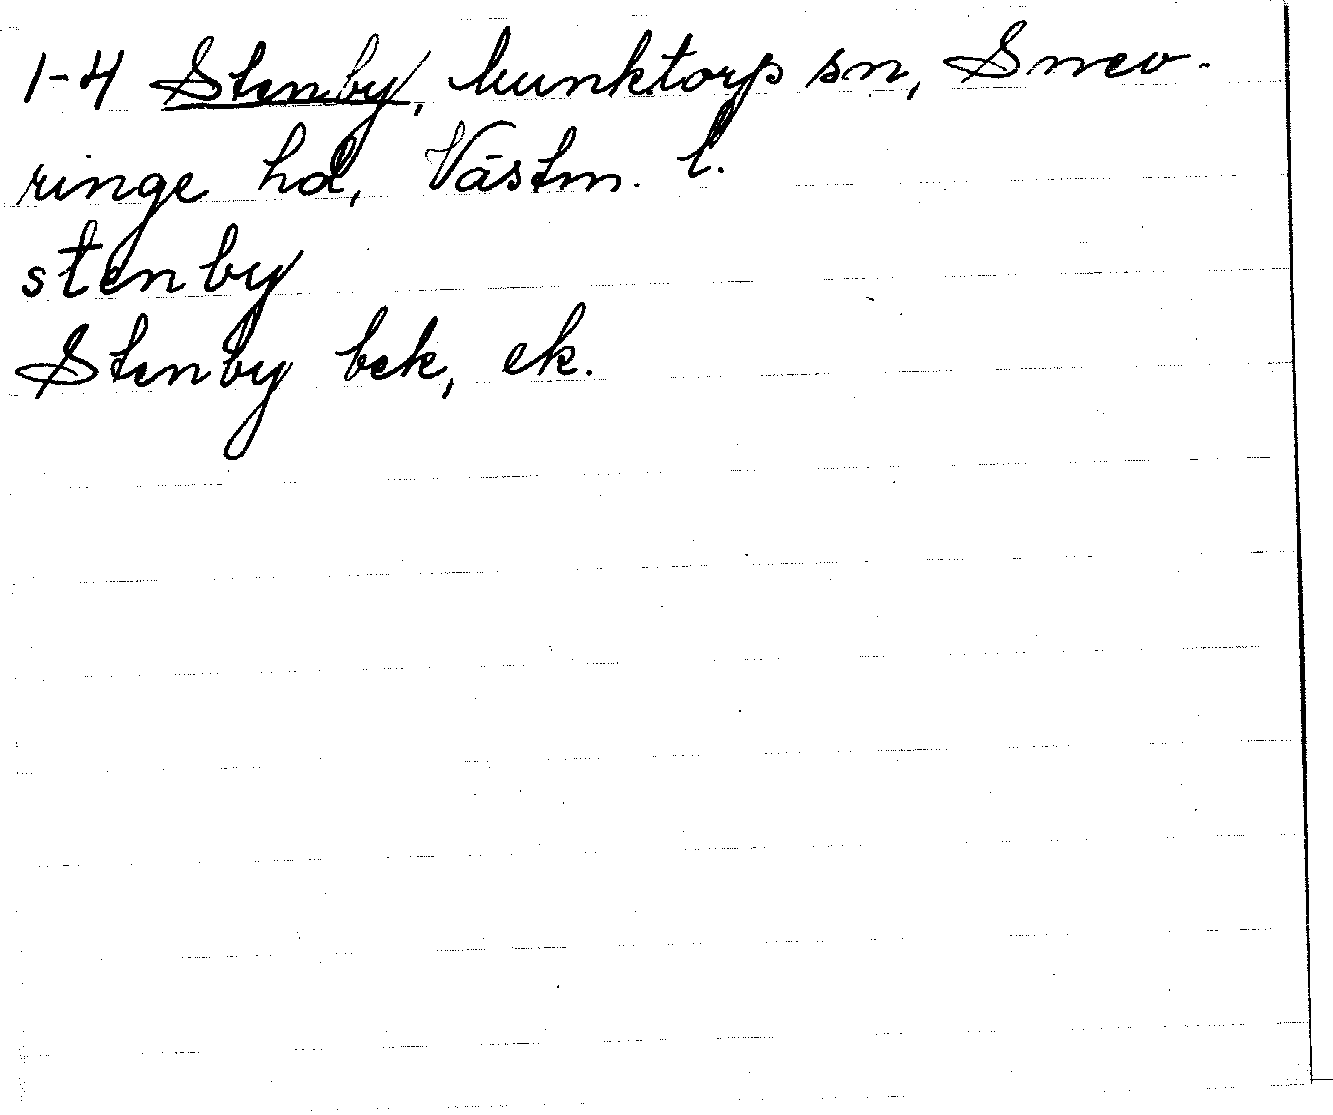 1-4 Stenby, Munktorps sn, Snev-
ringe hd, Västm. l.
stenby
Stenby bek, ek.